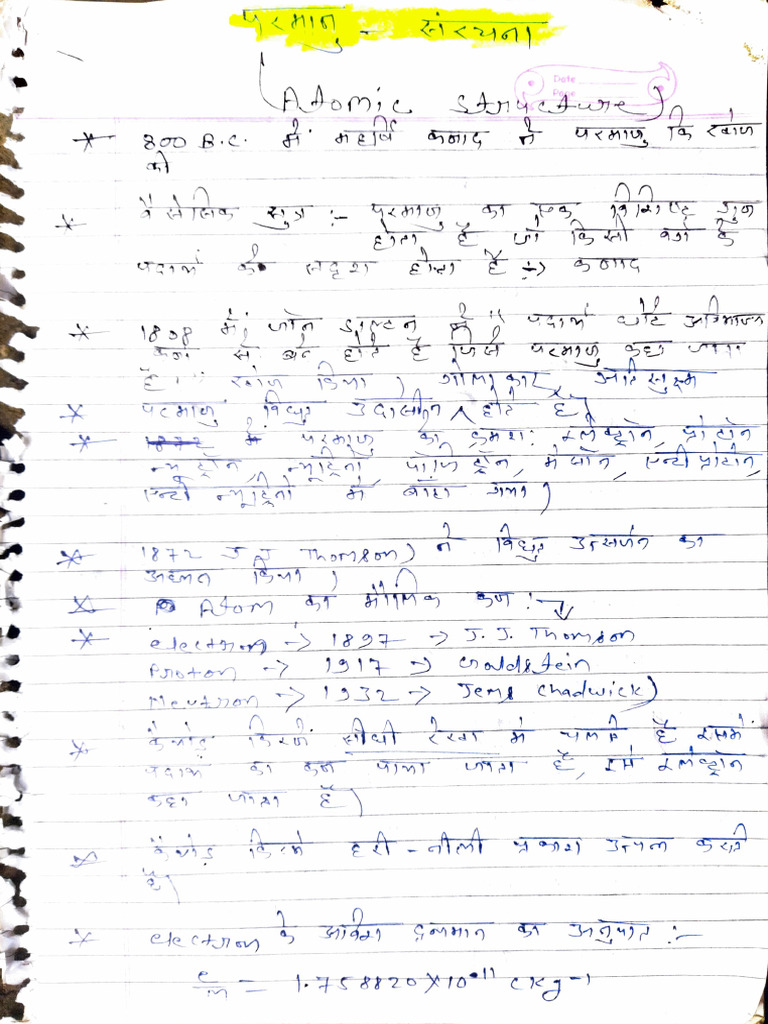 परमाणु - संरचना
Date
Page
(Atomic structure)
* 800 B.C. में महर्षि कनाद ने परमाणु कि खोज
की
* वैसेसिक सुत्र :- परमाणु का एक विशिष्ट गुन
होता है जो किसी वर्ग के
पदार्थ की सदृश होता है :-> कनाद
* 1808 में जॉन डाल्टन ने "पदार्थ छोटे अविभाज्य
कण से बने होते है जिसे परमाणु कहा जाता
है" खोज किया। गोलाकार, अति सुक्ष्म
* परमाणु विधुत उदासीन होते है।
* 1872 में परमाणु को क्रमश: इलेक्ट्रोन, प्रोटोन
न्यूट्रॉन, न्यूट्रिनो, पॉजिट्रॉन, मेसॉन, एन्टी प्रोटोन,
एन्टी न्यूट्रिनो में बाँटा गया।
* 1872 J.J Thomson) ने विधुत उत्सर्जन का
अध्ययन किया।
* Atom का मौलिक कण :-
* electron -> 1897 -> J.J. Thomson
Proton -> 1917 -> Goldstein
Neutron -> 1932 -> Jems Chadwick)
* कैथोड किरणें सीधी रेखा में चलती है इसमें
पदार्थ का कन पाया जाता है, इसे इलेक्ट्रोन
कहा जाता है।
* कैथोड़ किरणे हरी - नीली प्रकाश उत्पन करती
है।
* electron के आवेश द्रव्यमान का अनुपात :-
e/m = 1.758820 × 10^11 C kg-1